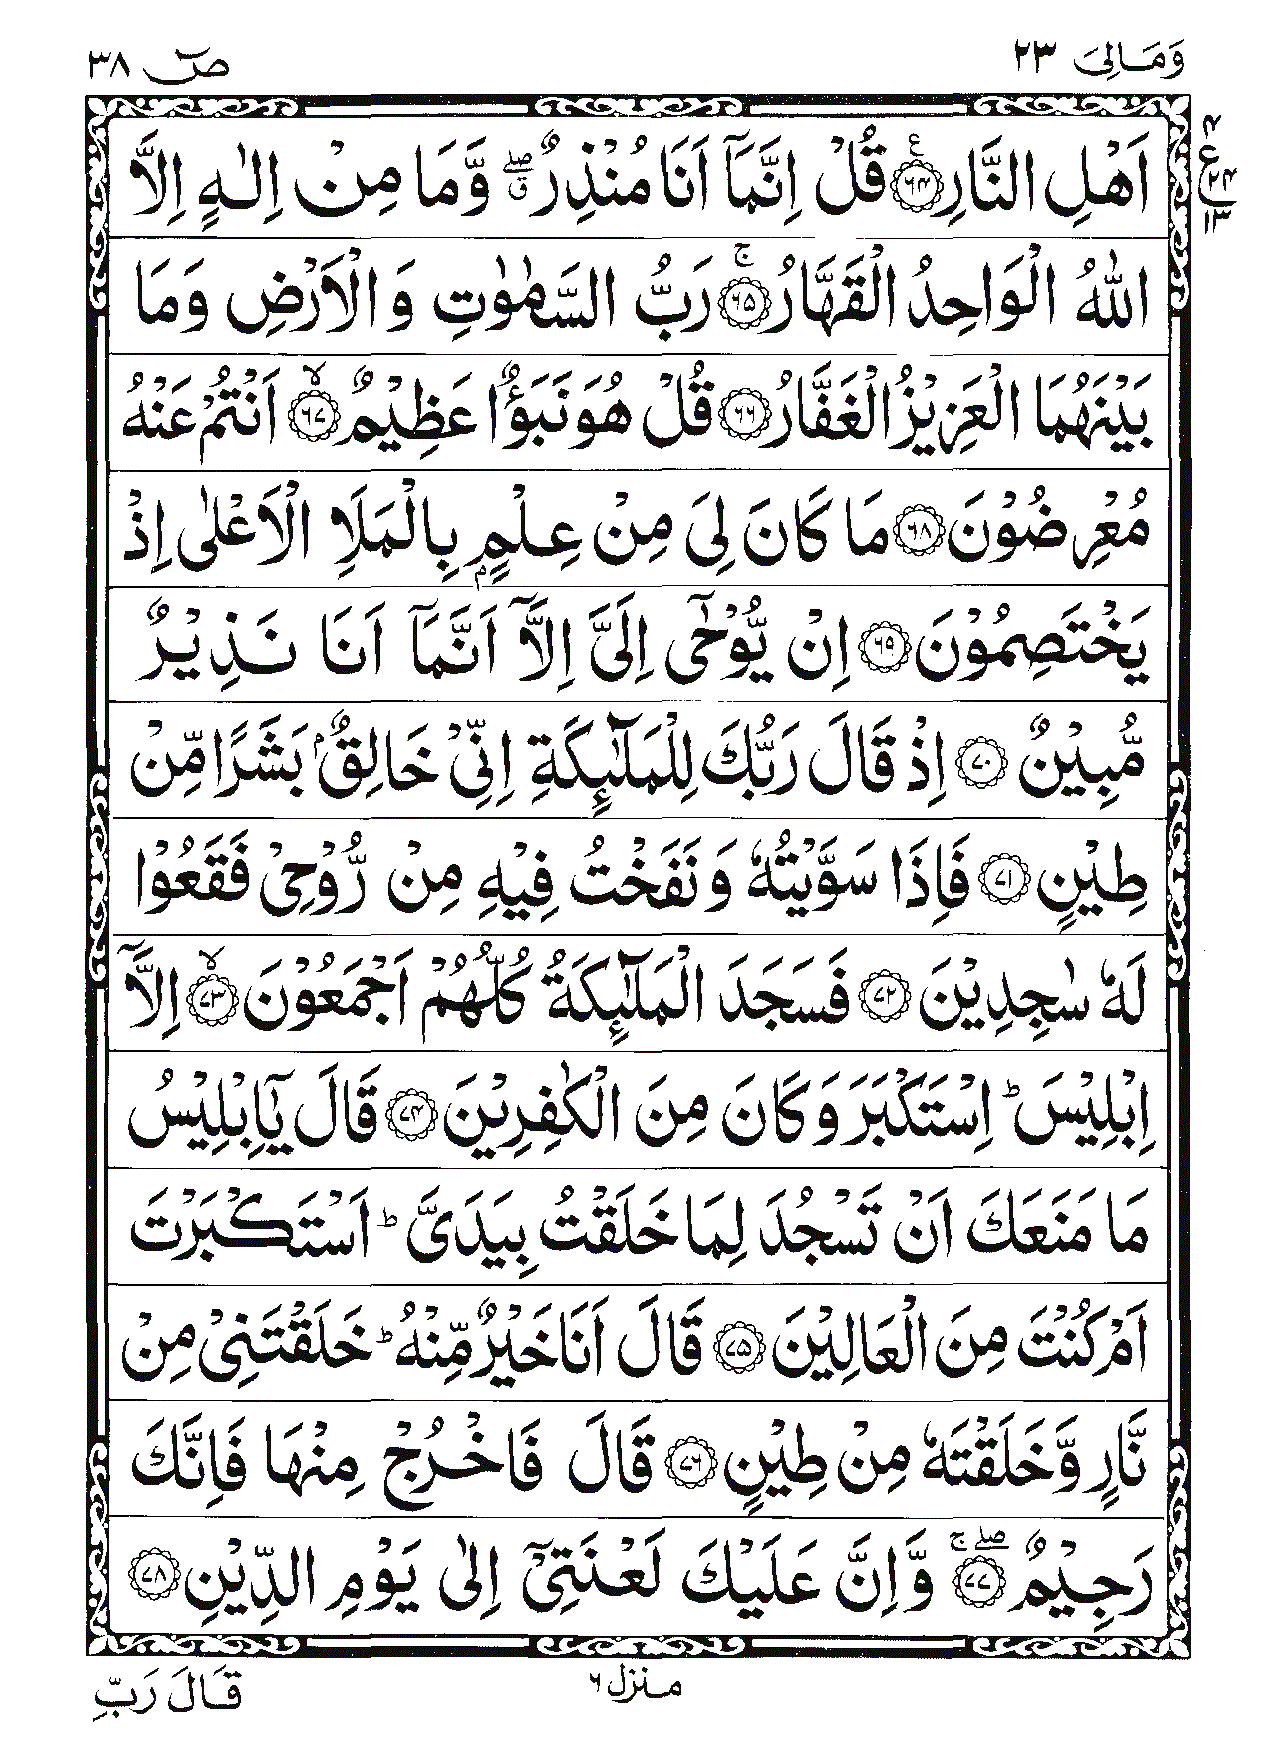 وَمَالِیَ ٢٣ صٓ ٣٨
اَهْلِ النَّارِ ﴿٦٤﴾ ع قُلْ اِنَّمَاۤ اَنَا مُنْذِرٌ ۖق وَّمَا مِنْ اِلٰهٍ اِلَّا
ع ٤ ٢٤ ١٣
اللّٰهُ الْوَاحِدُ الْقَهَّارُ ﴿٦٥﴾ ۚ رَبُّ السَّمٰوٰتِ وَ الْاَرْضِ وَمَا
بَيْنَهُمَا الْعَزِيْزُ الْغَفَّارُ ﴿٦٦﴾ قُلْ هُوَ نَبَؤٌا عَظِيْمٌ ﴿٦٧﴾ ۙ اَنْتُمْ عَنْهُ
مُعْرِضُوْنَ ﴿٦٨﴾ مَا كَانَ لِیَ مِنْ عِلْمٍۭ بِالْمَلَاِ الْاَعْلٰۤى اِذْ
يَخْتَصِمُوْنَ ﴿٦٩﴾ اِنْ يُّوْحٰۤى اِلَیَّ اِلَّاۤ اَنَّمَاۤ اَنَا نَذِيْرٌ
مُّبِيْنٌ ﴿٧٠﴾ اِذْ قَالَ رَبُّكَ لِلْمَلٰٓئِكَةِ اِنِّیْ خَالِقٌۢ بَشَرًا مِّنْ
طِيْنٍ ﴿٧١﴾ فَاِذَا سَوَّيْتُهٗ وَ نَفَخْتُ فِيْهِ مِنْ رُّوْحِیْ فَقَعُوْا
لَهٗ سٰجِدِيْنَ ﴿٧٢﴾ فَسَجَدَ الْمَلٰٓئِكَةُ كُلُّهُمْ اَجْمَعُوْنَ ﴿٧٣﴾ ۙ اِلَّاۤ
اِبْلِيْسَ ؕ اِسْتَكْبَرَ وَ كَانَ مِنَ الْكٰفِرِيْنَ ﴿٧٤﴾ قَالَ يٰۤاِبْلِيْسُ
مَا مَنَعَكَ اَنْ تَسْجُدَ لِمَا خَلَقْتُ بِيَدَیَّ ؕ اَسْتَكْبَرْتَ
اَمْ كُنْتَ مِنَ الْعَالِيْنَ ﴿٧٥﴾ قَالَ اَنَا خَيْرٌ مِّنْهُ ؕ خَلَقْتَنِیْ مِنْ
نَّارٍ وَّ خَلَقْتَهٗ مِنْ طِيْنٍ ﴿٧٦﴾ قَالَ فَاخْرُجْ مِنْهَا فَاِنَّكَ
رَجِيْمٌ ﴿٧٧﴾ ۖۚ وَّ اِنَّ عَلَيْكَ لَعْنَتِیْۤ اِلٰى يَوْمِ الدِّيْنِ ﴿٧٨﴾
منزل ٦
قَالَ رَبِّ